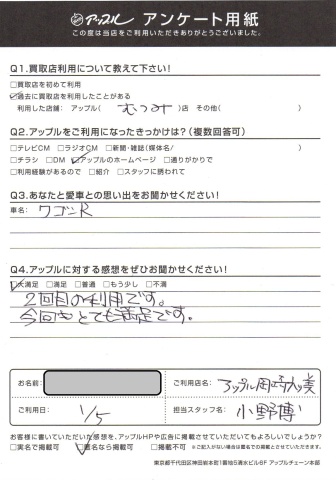 アップル アンケート用紙
この度は当店をご利用いただきありがとうございました。
Q1.買取店利用について教えて下さい!
□買取店を初めて利用
☑過去に買取店を利用したことがある
利用した店舗: アップル( むつみ )店 その他( )
Q2.アップルをご利用になったきっかけは?(複数回答可)
□テレビCM □ラジオCM □新聞・雑誌(媒体名/ )
□チラシ □DM ☑アップルのホームページ □通りがかりで
□利用経験があるので □紹介 □スタッフに誘われて
Q3.あなたと愛車との思い出をお聞かせください!
車名: ワゴンR
Q4.アップルに対する感想をぜひお聞かせください!
☑大満足 □満足 □普通 □もう少し □不満
2回目の利用です。
今回もとても満足です。
お名前:
ご利用店名: アップル岡崎六ッ美
ご利用日: 1/5
担当スタッフ名: 小野博
お客様に書いていただいた感想を、アップルHPや広告に掲載させていただいてもよろしいでしょうか?
□実名で掲載可 ☑匿名なら掲載可 □掲載不可 ※ご記入がない場合は匿名での掲載とさせていただきます。
東京都千代田区神田岩本町1番地5清水ビル6F アップルチェーン本部